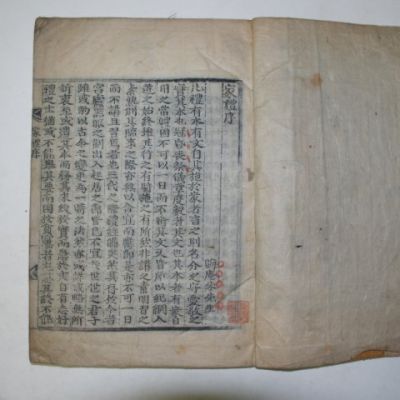 家禮序
晦庵朱先生
凡禮有本有文自其施於家者言之則名分之守愛敬之
實其本也冠昏喪祭儀章度數者其文也其本者有家日
用之常體固不可以一日而不修其文又皆所以紀綱人
道之始終雖其行之有時施之有所然非講之素明習之
素熟則其臨事之際亦無以合宜而應節是亦不可一日
而不講且習焉者也三代之際禮經備矣然其存於今者
宮廬器服之制出入起居之節皆已不宜於世世之君子
雖或酌以古今之變更爲一時之法然亦或詳或略無所
折衷至或遺其本而務其末緩於實而急於文自有志好
禮之士猶或不能舉其要而困於貧窶者尤患其終不能
家禮序